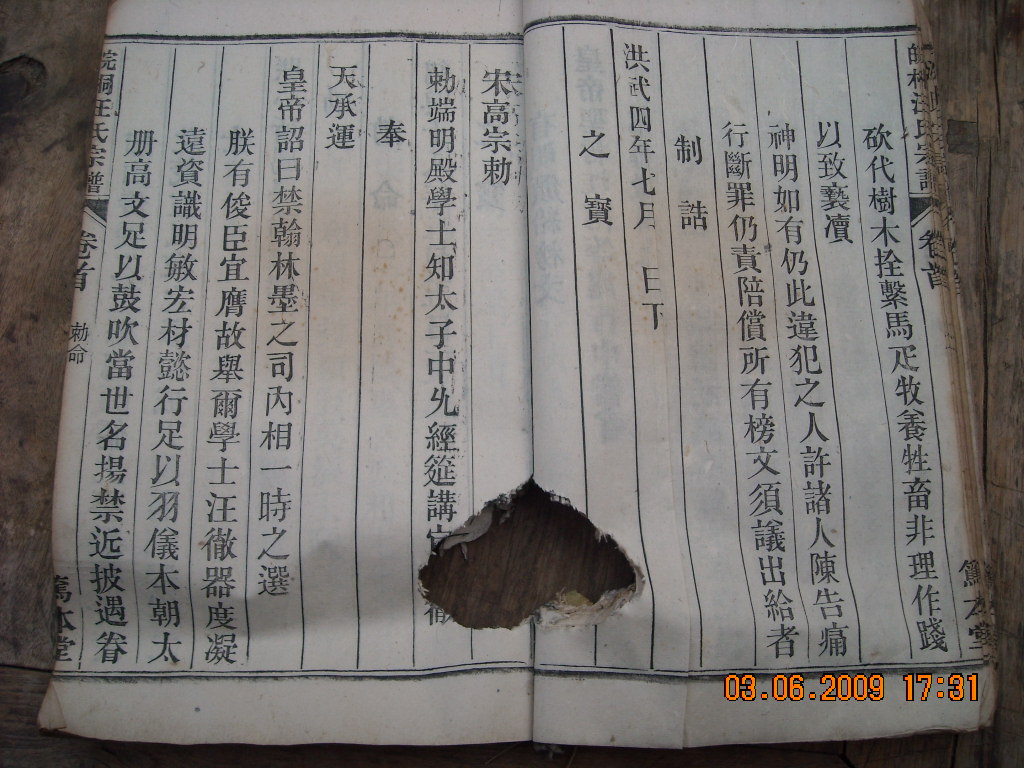 砍代樹木拴繫馬疋牧養牲畜非理作踐
以致褻瀆
神明如有仍此違犯之人許諸人陳告痛
行斷罪仍責陪償所有榜文須議出給者
制誥
洪武四年七月 日下
之寶
篤本堂
宋高宗勅
勅端明殿學士知太子中允經筵講
奉
天承運
皇帝詔曰禁翰林墨之司內相一時之選
朕有俊臣宜膺故舉爾學士汪徹器度凝
遠資識明敏宏材懿行足以羽儀本朝太
册高文足以鼓吹當世名揚禁近披遇眷
皖桐汪氏宗譜 卷首 勅命 篤本堂
03.06.2009 17:31